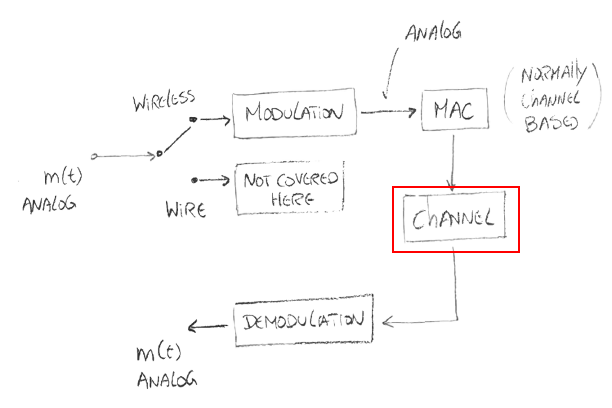 ANALOG
WIRELESS
MODULATION
MAC
(NORMALLY
CHANNEL
BASED)
m(t)
ANALOG
WIRE
NOT COVERED
HERE
CHANNEL
DEMODULATION
m(t)
ANALOG